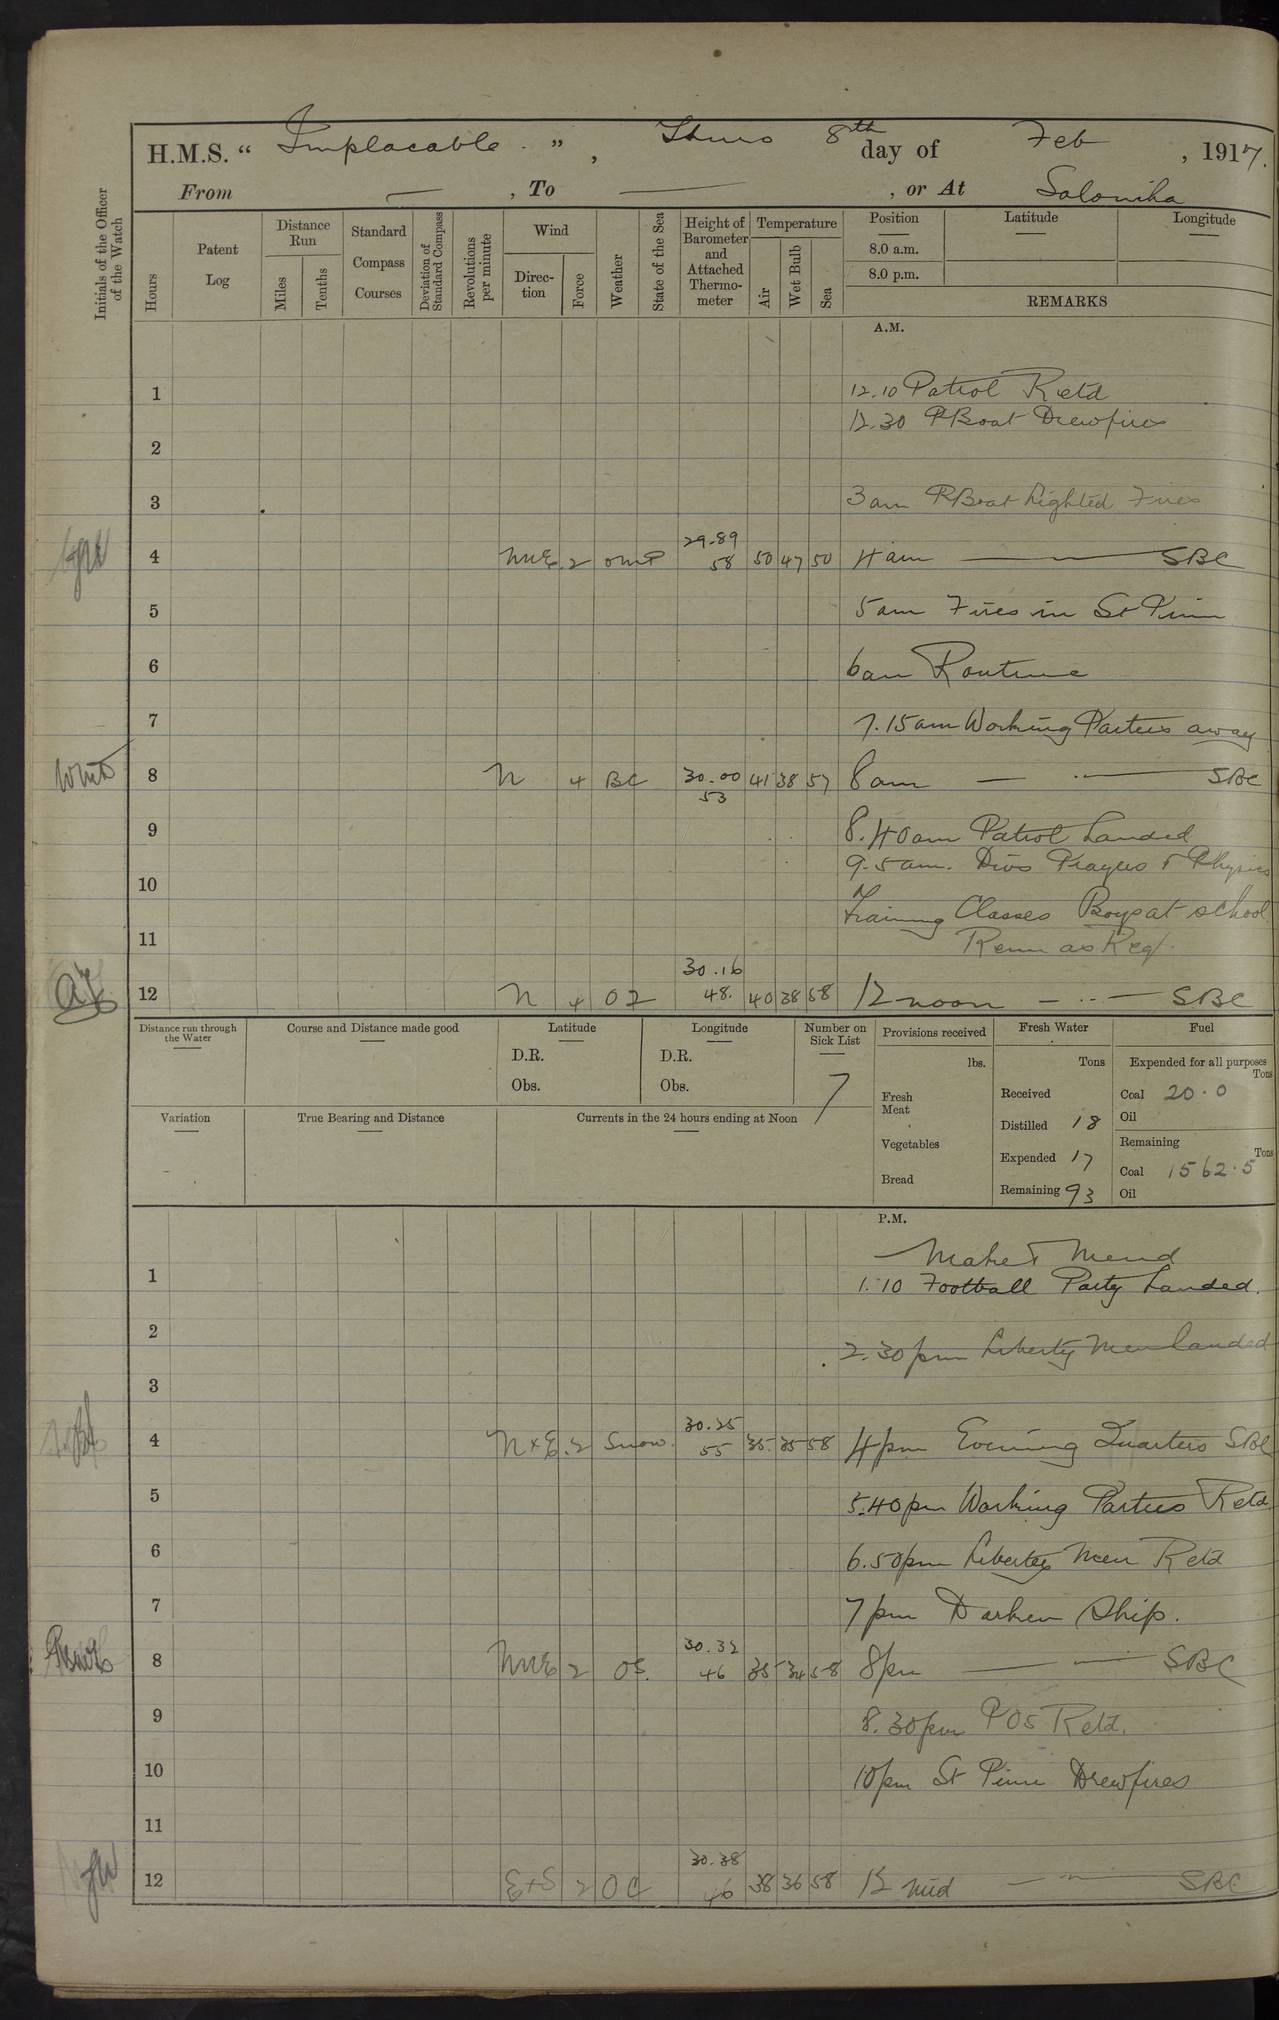 H.M.S. “ Implacable. ” , Thurs 8th day of Feb , 1917.
From — , To — , or At Salonika
Initials of the Officer of the Watch
Hours
Patent Log
Distance Run
Miles
Tenths
Standard Compass Courses
Deviation of Standard Compass
Revolutions per minute
Wind
Direc-tion
Force
Weather
State of the Sea
Height of Barometer and Attached Thermo-meter
Temperature
Air
Wet Bulb
Sea
Position
8.0 a.m.
8.0 p.m.
Latitude
Longitude
REMARKS
A.M.
1 12.10 Patrol Retd
12.30 PBoat Drewfires
2
3 3am PBoat Lighted Fires
29.89
4 NNE 2 omP 58 50 47 50 4am — — SBC
5 5am Fires in St Pinn
6 6am Routine
7 7.15am Working Parties away
8 N 4 BC 30.00 41 38 57 8am — — SBC
53
9 8.40am Patrol Landed
9.5am. Divs Prayers & Physics
10
Training Classes Boys at school
11 Rem as Req.
30.16
12 N 4 OZ 48. 40 38 58 12 noon — — SBC
Distance run through the Water
Course and Distance made good
Latitude
D.R.
Obs.
Longitude
D.R.
Obs.
Number on Sick List
7
Variation
True Bearing and Distance
Currents in the 24 hours ending at Noon
Provisions received
lbs.
Fresh Meat
Vegetables
Bread
Fresh Water
Tons
Received
Distilled 18
Expended 17
Remaining 93
Fuel
Expended for all purposes
Tons
Coal 20.0
Oil
Remaining
Tons
Coal 1562.5
Oil
P.M.
Make & Mend
1 1.10 Football Party Landed.
2 2.30pm Liberty Men landed
3
30.25
4 N x E. 2 Snow. 55 35 35 58 4pm Evening Quarters SBC
5 5.40pm Working Parties Retd
6 6.50pm Liberty Men Retd
7 7pm Darken Ship.
30.32
8 NNE 2 OS. 46 35 34 58 8pm — — SBC
9 8.30pm POs Retd.
10 10pm St Pinn Drewfires
11
30.38
12 E+S 2 OC 46 38 36 58 12 mid — — SBC